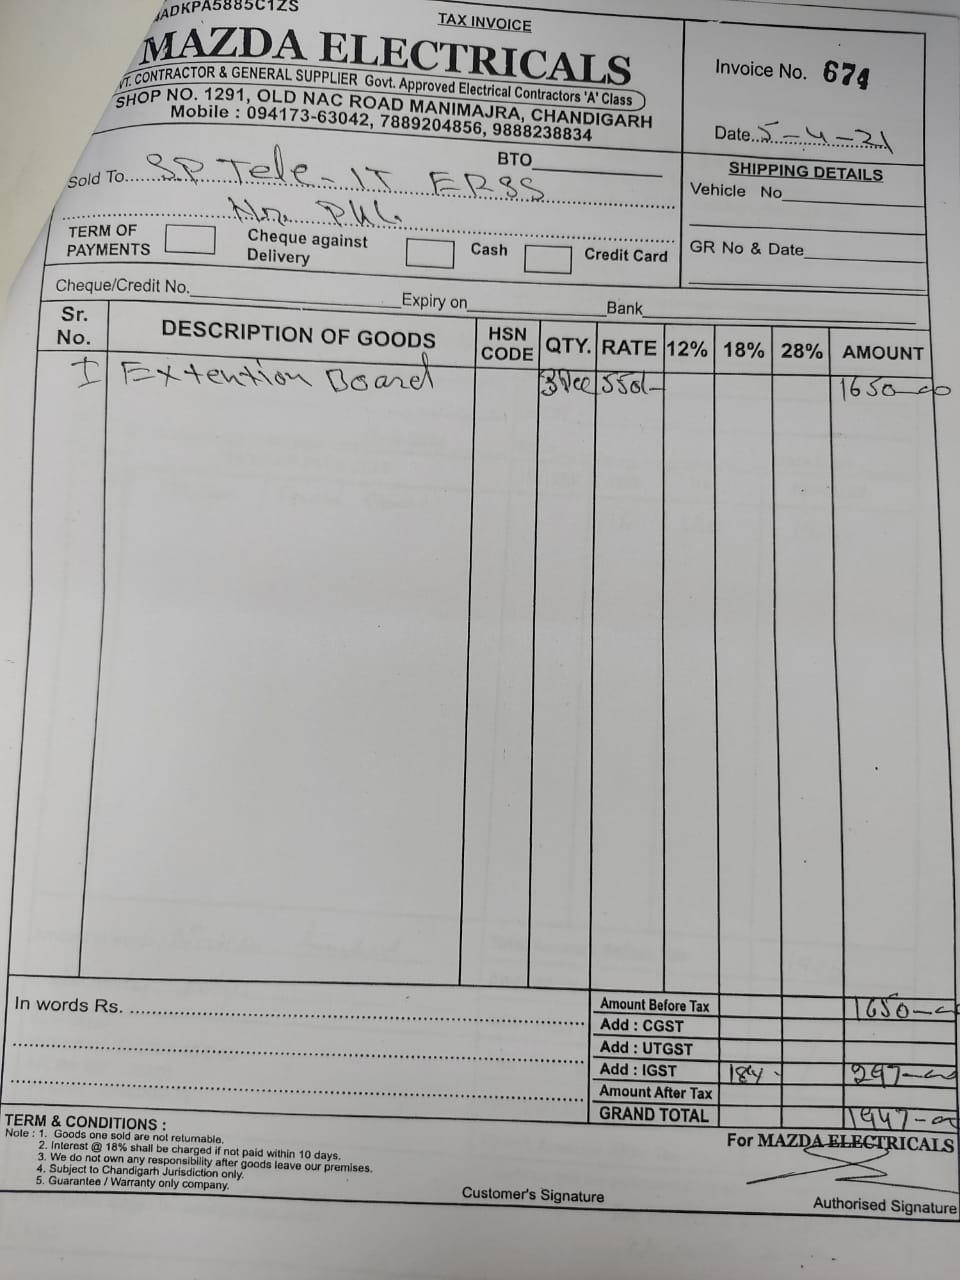 ADKPA5885C1ZS
TAX INVOICE
MAZDA ELECTRICALS
VT. CONTRACTOR & GENERAL SUPPLIER Govt. Approved Electrical Contractors 'A' Class
SHOP NO. 1291, OLD NAC ROAD MANIMAJRA, CHANDIGARH
Mobile : 094173-63042, 7889204856, 9888238834
Invoice No. 674
Date..5-4-21
BTO
Sold To..... SP Tele-IT ERSS
SHIPPING DETAILS
Vehicle No
GR No & Date
TERM OF PAYMENTS
Cheque against Delivery
Cash
Credit Card
Cheque/Credit No. Expiry on Bank
Sr. No. DESCRIPTION OF GOODS HSN CODE QTY. RATE 12% 18% 28% AMOUNT
I Extention Board 3Pce 550/- 1650-00
In words Rs.
Amount Before Tax 1650-00
Add : CGST
Add : UTGST
Add : IGST 18% 297-00
Amount After Tax
GRAND TOTAL 1947-00
TERM & CONDITIONS :
Note : 1. Goods one sold are not returnable.
2. Interest @ 18% shall be charged if not paid within 10 days.
3. We do not own any responsibility after goods leave our premises.
4. Subject to Chandigarh Jurisdiction only.
5. Guarantee / Warranty only company.
For MAZDA ELECTRICALS
Customer's Signature
Authorised Signature